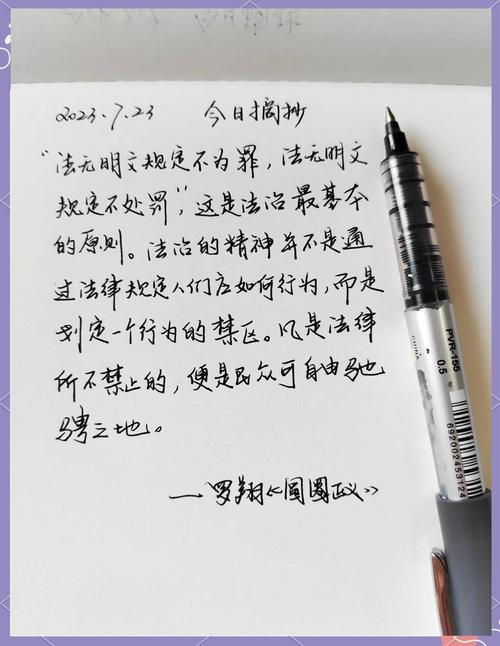 2023.7.23 今日摘抄
“法无明文规定不为罪，法无明文
规定不处罚”，这是法治最基本
的原则。法治的精神并不是通
过法律规定人们应如何行为，而是
划定一个行为的禁区。凡是法律
所不禁止的，便是民众可自由驰
骋之地。
——罗翔《圆圈正义》
PVR-155
0.5
CHINA
6920024531 24